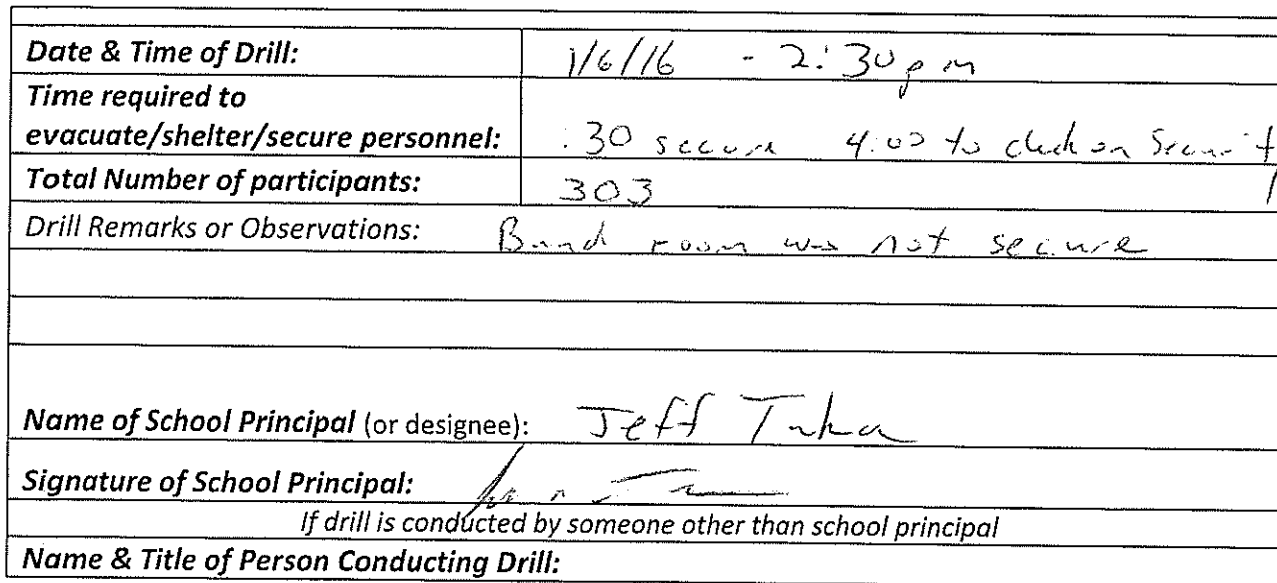 Date & Time of Drill: 1/6/16 - 2:30 pm
Time required to
evacuate/shelter/secure personnel: :30 secure 4:00 to check on Security
Total Number of participants: 303
Drill Remarks or Observations: Band room was not secure
Name of School Principal (or designee): Jeff
Signature of School Principal:
If drill is conducted by someone other than school principal
Name & Title of Person Conducting Drill: